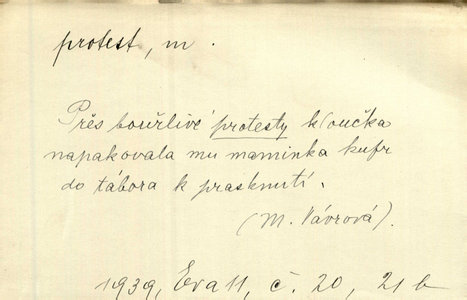 protest, m.
Přes bouřlivé protesty kloučka
napakovala mu maminka kufr
do tábora k prasknutí.
(M. Vávrová).
1939, Eva 11, č. 20, 21 b